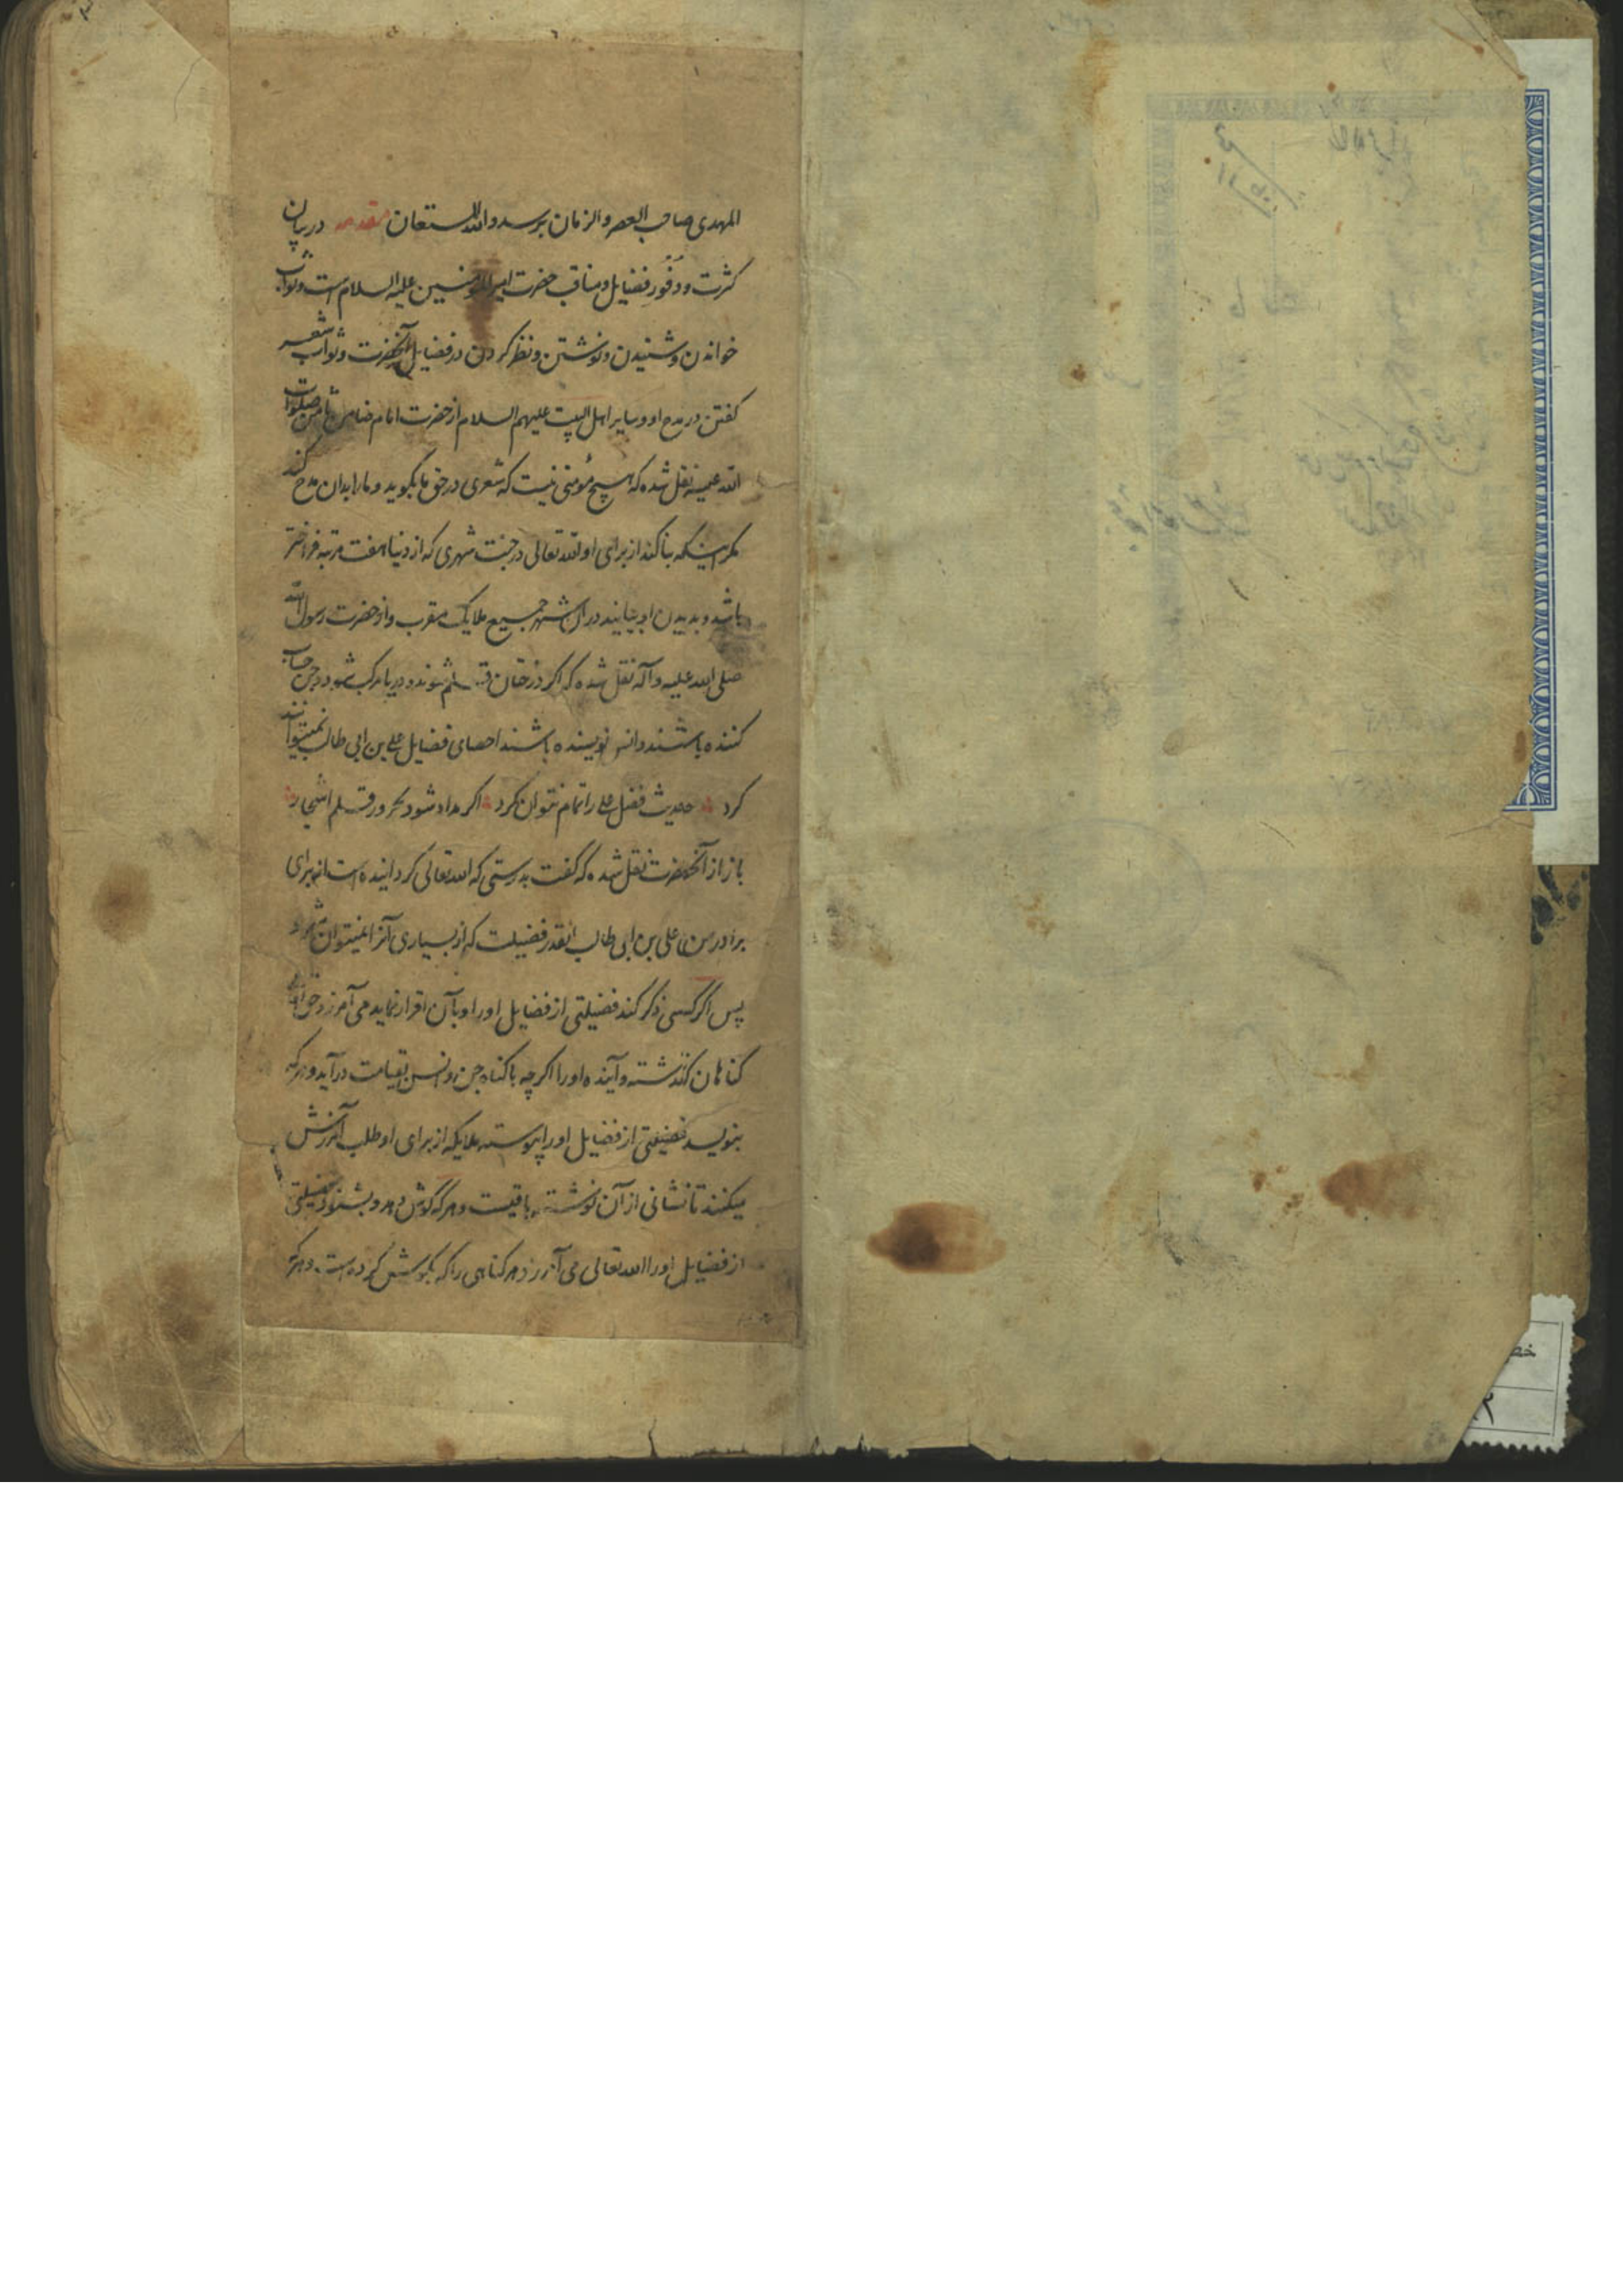 المهدی صاحب العصر والزمان برسد والله المستعان مقدمه در بیان
کثرت و وفور فضایل و مناقب حضرت امیرالمومنین علیه السلام است و ثواب
خواندن و شنیدن و نوشتن و نظر کردن در فضایل آنحضرت و ثواب شعر
کفتن در مدح او و سایر اهل البیت علیهم السلام از حضرت امام ضامن ثامن صلوات
الله علیه نقل شده که هیچ مؤمنی نیست که شعری در حق ما بکوید و ما را بدان مدح کند
مکر اینکه بنا کند از برای او الله تعالی در جنت شهری که از دنیا هفت مرتبه فراختر
باشد و بدیدن او بیایند در آن شهر جمیع ملایک مقرب و از حضرت رسول الله
صلی الله علیه و آله نقل شده که اکر درختان قلم شوند و دریا مرکب شود و جن حساب
کننده باشند و انس نویسنده باشند احصای فضایل علی بن ابی طالب نمیتوانند
کرد حدیث فضل علی را تمام نتوان کرد اکر مداد شود بحر و ر قلم اشجار
باز از آنحضرت نقل شده که کفت بدرستی که الله تعالی کردانیده است از برای
برادر من علی بن ابی طالب آنقدر فضیلت که از بسیاری آنرا نمیتوان شمرد
پس اکر کسی ذکر کند فضیلتی از فضایل او را و بآن اقرار نماید می آمرزد
کناهان کذشته و آینده او را اکرچه با کناه جن و انس بقیامت در آید و هر که
بنویسد فضیلتی از فضایل او را پیوسته ملایکه از برای او طلب آمرزش
میکنند تا نشانی از آن نوشته باقیست و هر که کوش دهد و بشنود فضیلتی
از فضایل او را الله تعالی می آمرزد هر کناهی را که بکوش کرده است و هر که